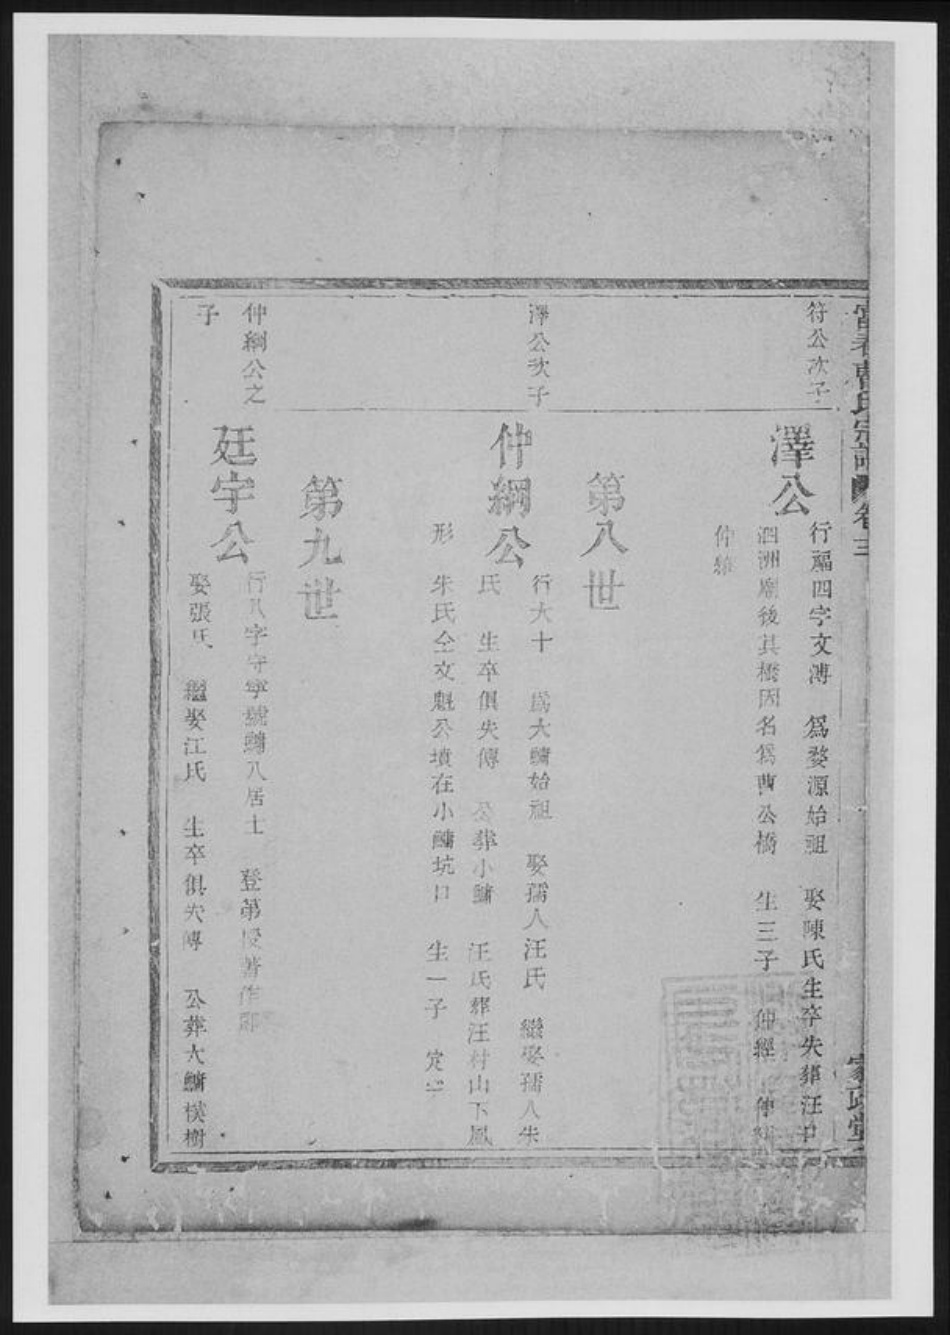 曹氏宗譜 卷三
符公次子
澤公
行福四字文溥 爲婺源始祖 娶陳氏生卒失葬汪口
泗洲廟後其橋因名爲曹公橋 生三子 仲經 仲綱
仲維
第八世
澤公次子
仲綱公
行大十 爲大鱅始祖 娶孺人汪氏 繼娶孺人朱
氏 生卒俱失傳 公葬小鱅 汪氏葬汪村山下鳳
形 朱氏仝文魁公墳在小鱅坑口 生一子
第九世
仲綱公之
子
廷宇公
行八字守寧號鱅八居士 登第授著作郎
娶張氏 繼娶江氏 生卒俱失傳 公葬大鱅樸樹